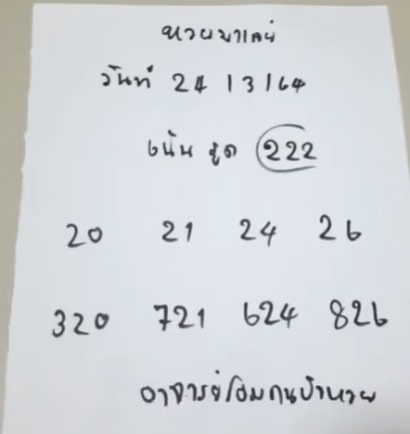 หวยมาเลย์
วันที่ 24/3/64
เน้น ชุด 222
20 21 24 26
320 721 624 826
อาจารย์โอมคนบ้าหวย